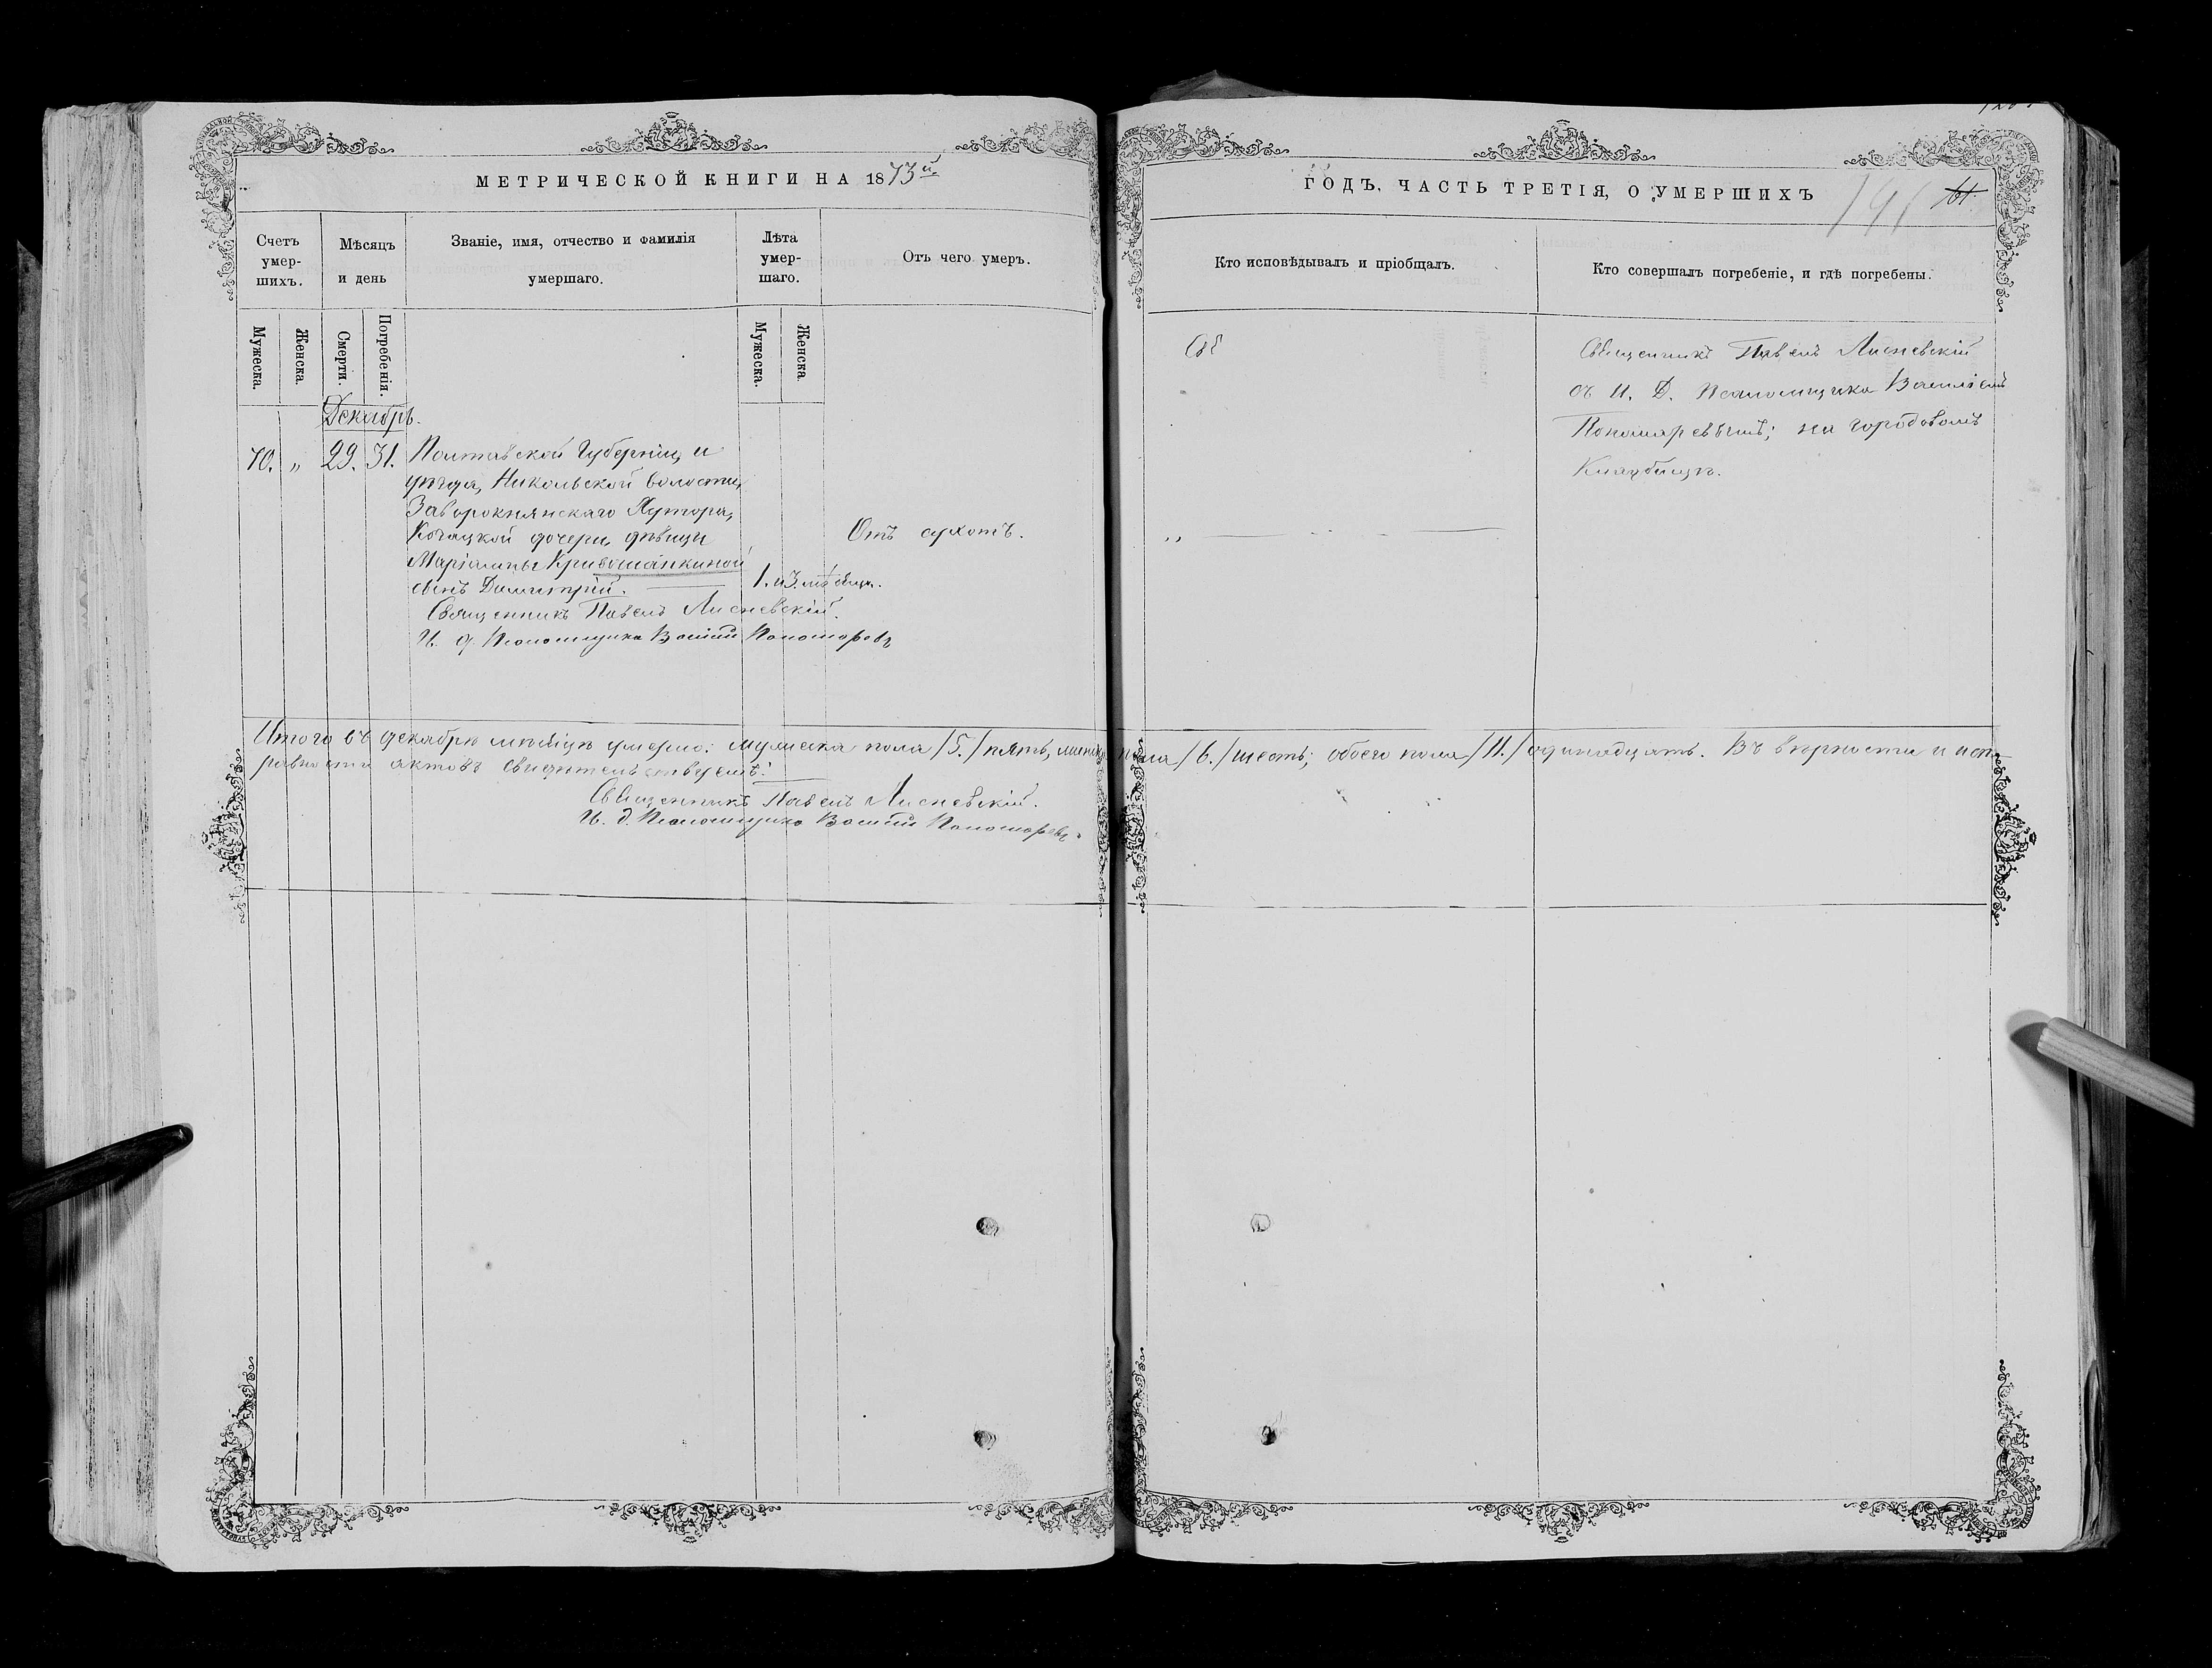 МЕТРИЧЕСКОЙ КНИГИ НА 1873й
Счетъ умер-шихъ.
Мѣсяцъ и день
Званіе, имя, отчество и фамилія умершаго.
Лѣта умер-шаго.
Отъ чего умеръ.
Мужеска.
Женска.
Смерти.
Погребенія.
Мужеска.
Женска
Декабрь.
70. „ 29. 31. Полтавской Губерніи, и
уѣзда, Никольской волости,
Хутора,
Козацкой дочери, дѣвицы
Кривошапкиной
сынъ Димитрій. 1. и 3. мѣсяц.
Отъ сухотъ.
Священникъ Павелъ Лисневскій.
И. д. Псаломщика Василій Пономаревъ
Итого въ декабрѣ мѣсяцѣ умерло: мужеска пола /5./ пять, женска пола /6./ шесть; обоего пола /11./ одинадцать. Въ вѣрности и исп-
равности актовъ свидѣтельствуемъ:
Священникъ Павелъ Лисневскій.
И. д. Псаломщика Василій Пономаревъ.
ГОДЪ, ЧАСТЬ ТРЕТІЯ, О УМЕРШИХЪ
141
61.
Кто исповѣдывалъ и пріобщалъ.
Кто совершалъ погребеніе, и гдѣ погребены.
Священникъ Павелъ Лисневскій
съ И. Д. Псаломщика Василіемъ
Пономаревымъ; на городовомъ
Кладбищѣ.
„